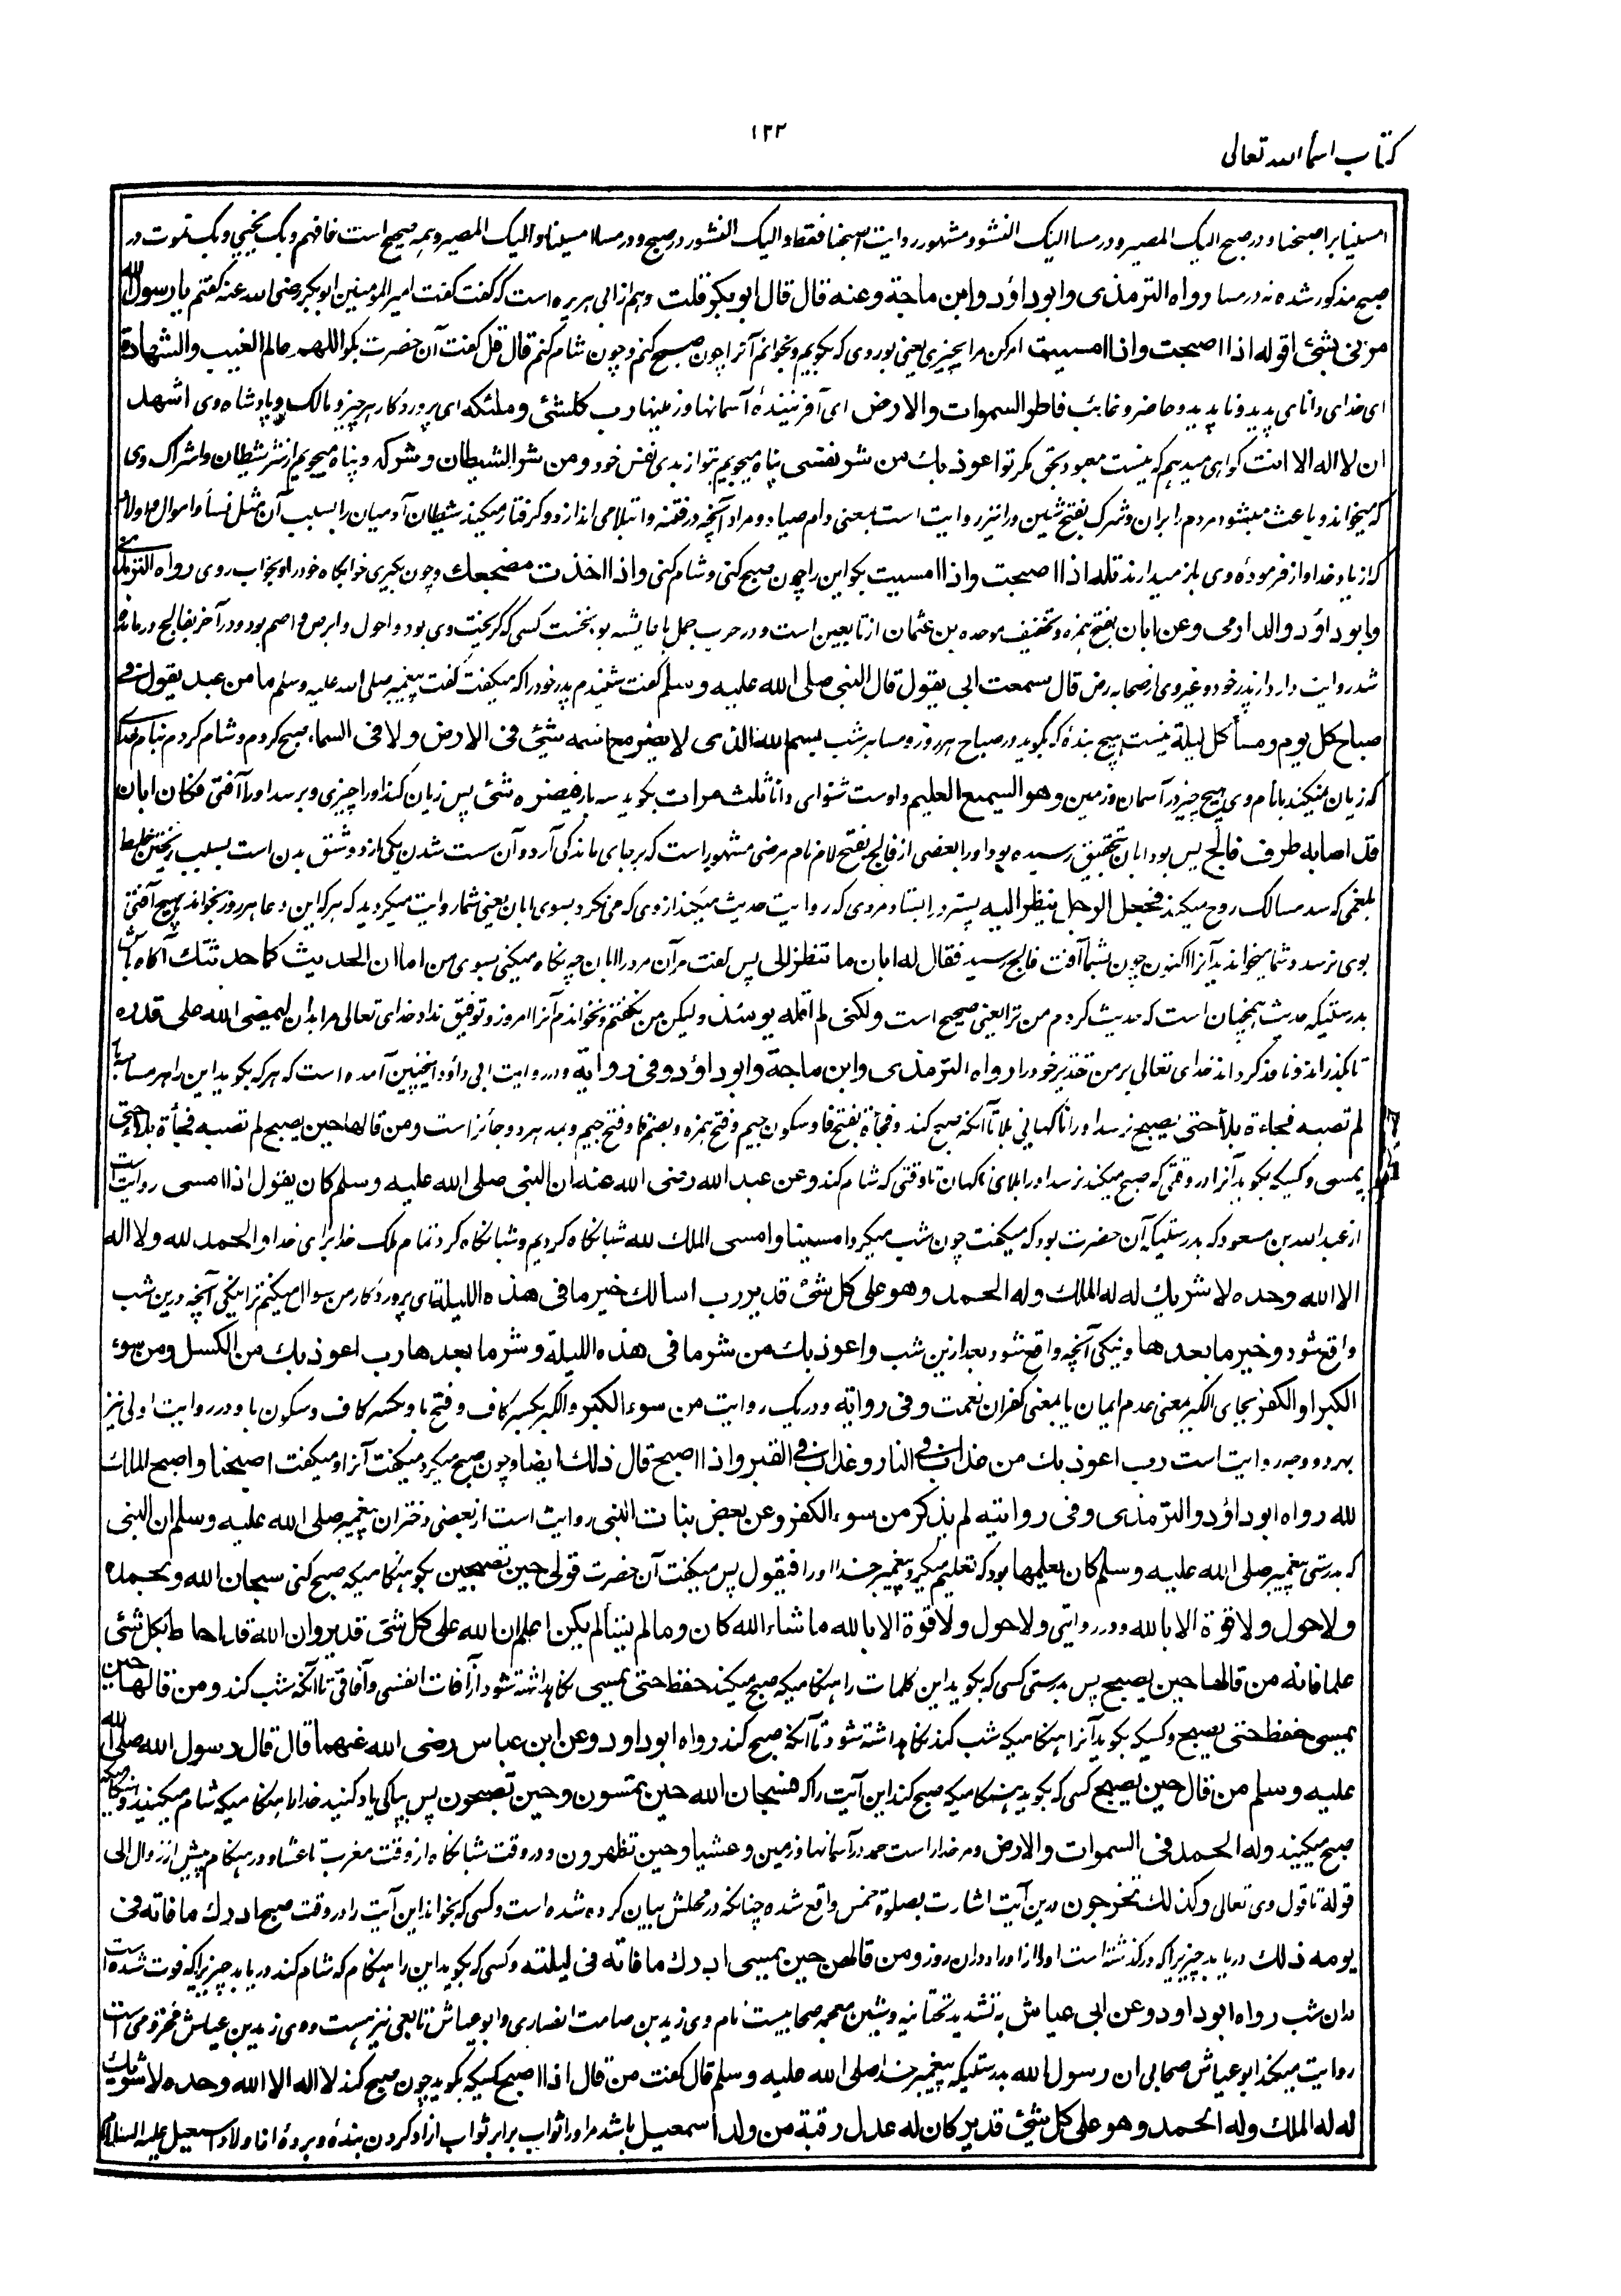 ۱۲۲
کتاب اسماء الله تعالی
امسینا بر اصبحنا و در صبح الیک المصیر و در مسا الیک النشور و مشهور روایت اصبحنا فقط و الیک النشور در صبح و در مسا امسینا و الیک المصیر و همه صحیح است فافهم و بک نحیی و بک نموت در
صبح مذکور شده نه در مسا رواه الترمذی و ابوداؤد و ابن ماجة و عنه قال قال ابوبکر قلت و هم از ابی هریره است که گفت گفت امیر المومنین ابوبکر رضی الله عنه گفتم یا رسول الله
مرنی بشئ اقوله اذا اصبحت و اذا امسیت امر کن مرا بچیزی یعنی بوردی که بگویم و بخوانم آنرا چون صبح کنم و چون شام کنم قال قل گفت آن حضرت بگو اللهم عالم الغیب و الشهادة
ای خدای دانای پدید و ناپدید و حاضر و غائب فاطر السموات والارض ای آفرینندهٔ آسمانها و زمینها رب کل شئ و ملیکه ای پروردگار هر چیز و مالک و پادشاه وی اشهد
ان لا اله الا انت گواهی میدهم که نیست معبود بحق مگر تو اعوذ بک من شر نفسی پناه میجویم بتو از بدی نفس خود و من شر الشیطان و شرکه و پناه میجویم از شر شیطان و اشراک وی
که میخواند و باعث میشود مردم را بران و شرک بفتح شین و را نیز روایت است بمعنی دام صیاد و مراد آنچه در فتنه و ابتلا می اندازد و گرفتار میکند شیطان آدمیان را بسبب آن مثل نسا و اموال و اولاد
که از یاد خدا و از فرمودهٔ وی باز میدارند قله اذا اصبحت و اذا امسیت بگو این را چون صبح کنی و شام کنی و اذا اخذت مضجعک و چون بگیری خوابگاه خود را و بخواب روی رواه الترمذی
و ابوداؤد والدارمی و عن ابان بفتح همزه و تخفیف موحده بن عثمان از تابعین است و در حرب جمل با عایشه بود نخست کسی که گریخت وی بود و احول و ابرص و اصم بود و در آخر بفالج در مانده
شد روایت دارد از پدر خود و غیر وی از صحابه رض قال سمعت ابی یقول قال النبی صلی الله علیه وسلم گفت شنیدم پدر خود را که میگفت گفت پیغمبر صلی الله علیه وسلم ما من عبد یقول فی
صباح کل یوم و مساء کل لیلة نیست هیچ بندهٔ که بگوید در صباح هر روز و مسا هر شب بسم الله الذی لا یضر مع اسمه شئ فی الارض و لا فی السماء صبح کردم و شام کردم بنام خدای
که زیان نمیکند با نام وی هیچ چیز در آسمان و زمین و هو السمیع العلیم و اوست شنوای دانا ثلث مرات بگوید سه بار فیضره شئ پس زیان کند او را چیزی و برسد او را آفتی فکان ابان
قد اصابه طرف فالج پس بود ابان بتحقیق رسیده بود او را بعضی از فالج بفتح لام نام مرضی مشهور است که بر جای ماندگی آرد و آن سست شدن یکی از دو شق بدن است بسبب ریختن خلط
بلغمی که سد مسالک روح میکند فجعل الرجل ینظر الیه پس در ایستاد مردی که روایت حدیث میکند از وی که می نگرد بسوی ابان یعنی شما روایت میکردید که هر که این دعا هر روز بخواند هیچ آفتی
بوی نرسد و شما میخواندید آنرا اکنون چون بشما آفت فالج رسید فقال له ابان ما تنظر الی پس گفت مر آن مرد را ابان چه نگاه میکنی بسوی من اما ان الحدیث کما حدثتک آگاه باش
بدرستیکه حدیث همچنان است که حدیث کردم من ترا یعنی صحیح است و لکنی لم اقله یومئذ و لیکن من نگفتم و نخواندم آنرا امروز و توفیق نداد خدای تعالی مرا بدان لیمضی الله علی قدره
تا بگذراند و نافذ گرداند خدای تعالی بر من تقدیر خود را رواه الترمذی و ابن ماجة و ابوداؤد و فی روایة و در روایت ابی داؤد اینچنین آمده است که هر که بگوید این را هر مسا
لم تصبه فجاءة بلاء حتی یصبح نرسد او را ناگهانی بلا تا آنکه صبح کند و فجأة بفتح فا و سکون جیم و فتح همزه و بضم فا و فتح جیم و بمد هر دو جائز است و من قالها حین یصبح لم تصبه فجأة بلاء حتی
یمسی و کسیکه بگوید آنرا در وقتی که صبح میکند نرسد او را بلای ناگهان تا وقتی که شام کند و عن عبد الله رضی الله عنه ان النبی صلی الله علیه وسلم کان یقول اذا امسی روایت است
از عبد الله بن مسعود که بدرستیکه آن حضرت بود که میگفت چون شب میکرد امسینا و امسی الملک لله شبانگاه کردیم و شبانگاه کرد تمام ملک خدا برای خدا و الحمد لله و لا اله
الا الله وحده لا شریک له له الملک و له الحمد و هو علی کل شئ قدیر رب اسألک خیر ما فی هذه اللیلة ای پروردگار من سوال میکنم ترا نیکی آنچه درین شب
واقع شود و خیر ما بعدها و نیکی آنچه واقع شود بعد ازین شب و اعوذ بک من شر ما فی هذه اللیلة و شر ما بعدها رب اعوذ بک من الکسل و من سوء
الکبر او الکفر بجای الکبر معنی عدم ایمان یا بمعنی کفران نعمت و فی روایة و در یک روایت من سوء الکبر و الکبر بکسر کاف و فتح با و بکسر کاف و سکون با و در روایت اولی نیز
بهر دو وجه روایت است رب اعوذ بک من عذاب فی النار و عذاب فی القبر و اذا اصبح قال ذلک ایضا و چون صبح میکرد میگفت آنرا و میگفت اصبحنا و اصبح الملک
لله رواه ابوداؤد والترمذی و فی روایته لم یذکر من سوء الکفر و عن بعض بنات النبی روایت است از بعضی دختران پیغمبر صلی الله علیه وسلم ان النبی
که بدرستی پیغمبر صلی الله علیه وسلم کان یعلمها بود که تعلیم میکرد پیغمبر خدا او را فیقول پس میگفت آن حضرت قولی حین تصبحین بگو هنگامیکه صبح کنی سبحان الله و بحمده
و لا حول و لا قوة الا بالله و در روایتی و لا حول و لا قوة الا بالله ما شاء الله کان و ما لم یشأ لم یکن اعلم ان الله علی کل شئ قدیر و ان الله قد احاط بکل شئ
علما فانه من قالها حین یصبح پس بدرستی کسی که بگوید این کلمات را هنگامیکه صبح میکند حفظ حتی یمسی نگاهداشته شود از آفات انفسی و آفاقی تا آنکه شب کند و من قالها حین
یمسی حفظ حتی یصبح و کسیکه بگوید آنرا هنگامیکه شب کند نگاهداشته شود تا آنکه صبح کند رواه ابوداود و عن ابن عباس رضی الله عنهما قال قال رسول الله صلی الله
علیه وسلم من قال حین یصبح کسی که بگوید هنگامیکه صبح کند این آیت را که فسبحان الله حین تمسون و حین تصبحون پس بپاکی یاد کنید خدا را هنگامیکه شام میکنید و هنگامیکه
صبح میکنید و له الحمد فی السموات والارض و مر خدا راست حمد در آسمانها و زمین و عشیا و حین تظهرون و در وقت شبانگاه از وقت مغرب تا عشا و در هنگام پیش از زوال الی
قوله تا قول وی تعالی و کذلک تخرجون درین آیت اشارت بصلوة خمس واقع شده چنانکه در محلش بیان کرده شده است و کسی که بخواند این آیت را در وقت صبح ادرک ما فاته فی
یومه ذلک دریابد چیزیرا که درگذشته است او را از اوراد دران روز و من قالهن حین یمسی ادرک ما فاته فی لیلته و کسی که بگوید این را هنگام که شام کند دریابد چیزیرا که فوت شده است
دران شب رواه ابوداود و عن ابی عیاش به تشدید تحتانیه و شین معجمه صحابیست نام وی زید بن صامت انصاری و ابو عیاش تابعی نیز هست و وی زید بن عیاش مخزومی است
روایت میکند ابو عیاش صحابی ان رسول الله بدرستیکه پیغمبر خدا صلی الله علیه وسلم قال گفت من قال اذا اصبح کسیکه بگوید چون صبح کند لا اله الا الله وحده لا شریک
له له الملک و له الحمد و هو علی کل شئ قدیر کان له عدل رقبة من ولد اسمعیل باشد مر او را ثواب برابر ثواب آزاد کردن بندهٔ و بردهٔ از اولاد اسمعیل علیه السلام